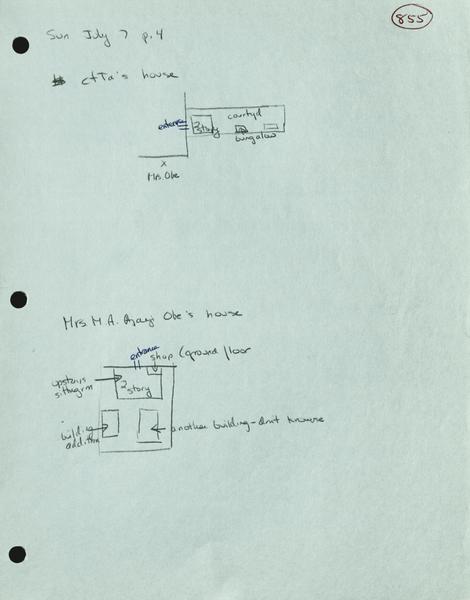 855
Sun July 7 p.4
ctTa's house
entrance
2 story
courtyd
bungalow
x
Mrs. Obe
Mrs M.A. Ajayi Obe's house
entrance
shop (ground floor
upstairs
sittingrm
2 story
building
addition
another building - don't know use